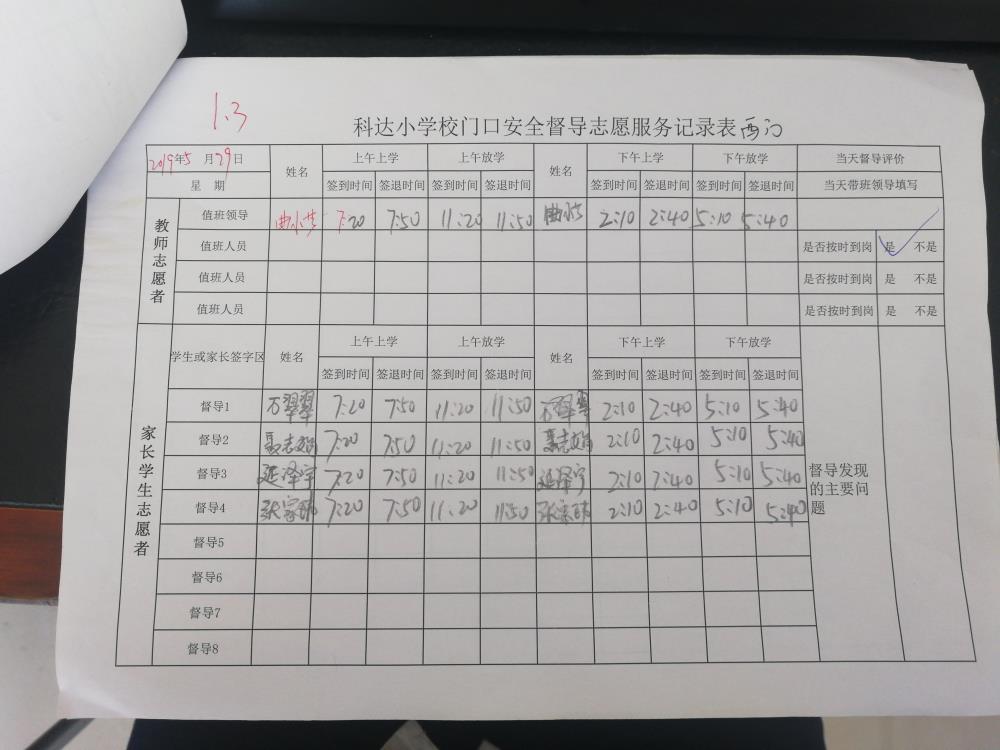 1.3
科达小学校门口安全督导志愿服务记录表 西门
2019年5月29日 姓名 上午上学 上午放学 姓名 下午上学 下午放学 当天督导评价
星 期 签到时间 签退时间 签到时间 签退时间 签到时间 签退时间 签到时间 签退时间 当天带班领导填写
教师志愿者
值班领导 7:20 7:50 11:20 11:50 2:10 2:40 5:10 5:40
值班人员 是否按时到岗 是 不是
值班人员 是否按时到岗 是 不是
值班人员 是否按时到岗 是 不是
家长学生志愿者
学生或家长签字区 姓名 上午上学 上午放学 姓名 下午上学 下午放学
签到时间 签退时间 签到时间 签退时间 签到时间 签退时间 签到时间 签退时间
督导1 万翠翠 7:20 7:50 11:20 11:50 万翠翠 2:10 2:40 5:10 5:40
督导2 7:20 7:50 11:20 11:50 2:10 2:40 5:10 5:40
督导3 延泽宇 7:20 7:50 11:20 11:50 延泽宇 2:10 2:40 5:10 5:40
督导4 7:20 7:50 11:20 11:50 2:10 2:40 5:10 5:40
督导5
督导6
督导7
督导8
督导发现
的主要问
题